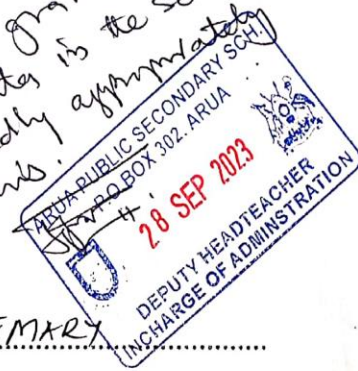 gran
in the S
dly appropriately
ARUA PUBLIC SECONDARY SCH.
P.O BOX 302. ARUA
28 SEP 2023
DEPUTY HEADTEACHER
INCHARGE OF ADMINSTRATION
EMARY